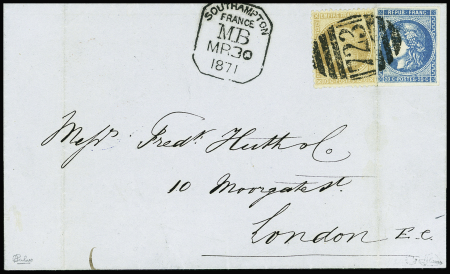 SOUTHAMPTON
FRANCE
MB
MR 30
1871
723
REPUB. FRANC.
Messrs Fredk Huth & Co
10 Moorgate St.
London E.C.